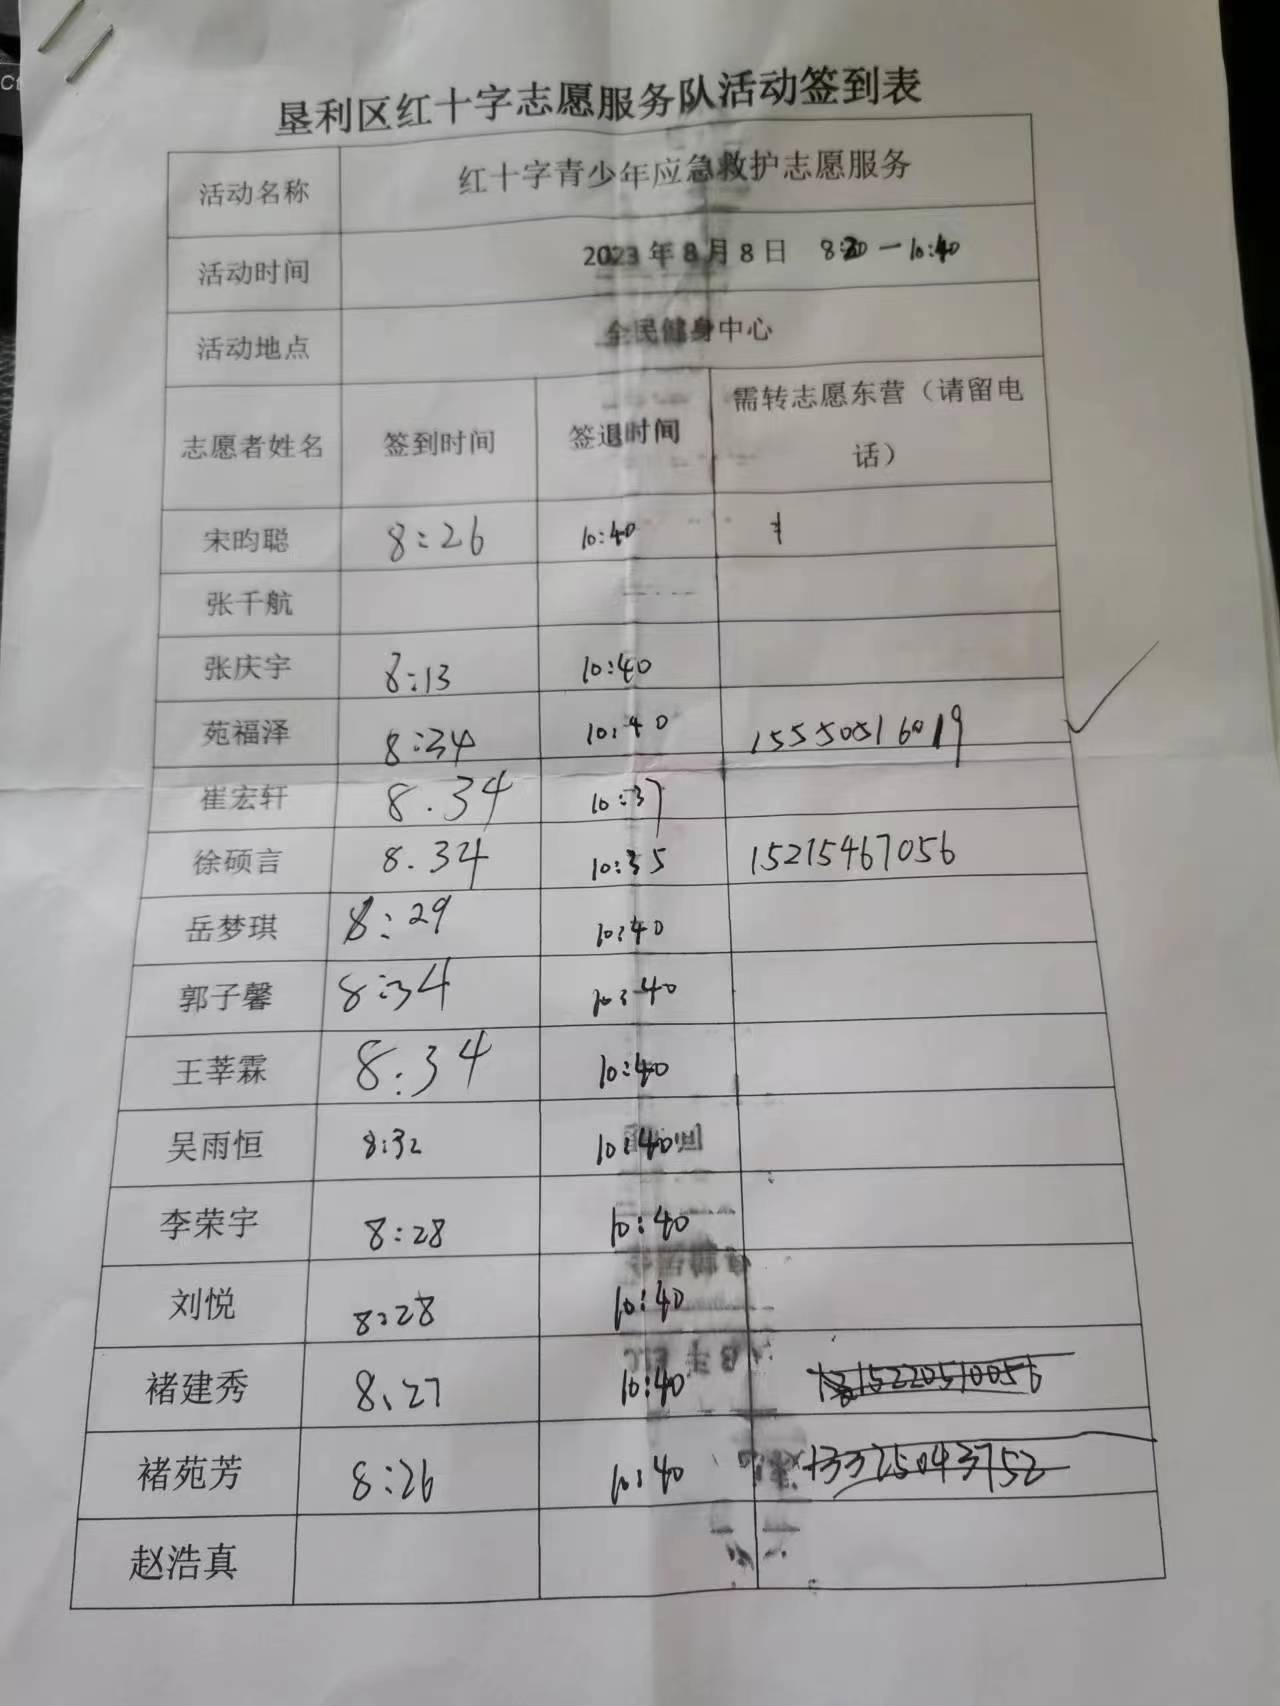 垦利区红十字志愿服务队活动签到表
活动名称 红十字青少年应急救护志愿服务
活动时间 2023年8月8日 8:30—10:40
活动地点 全民健身中心
志愿者姓名 签到时间 签退时间 需转志愿东营（请留电话）
宋昀聪 8:26 10:40
张千航
张庆宇 8:13 10:40
苑福泽 8:34 10:40 15550516019
崔宏轩 8.34 10:37
徐硕言 8.34 10:35 15215467056
岳梦琪 8:29 10:40
郭子馨 8:34 10:40
王莘霖 8.34 10:40
吴雨恒 8:32 10:40
李荣宇 8:28 10:40
刘悦 8:28 10:40
褚建秀 8:27 10:40
褚苑芳 8:26 10:40 13325043752
赵浩真